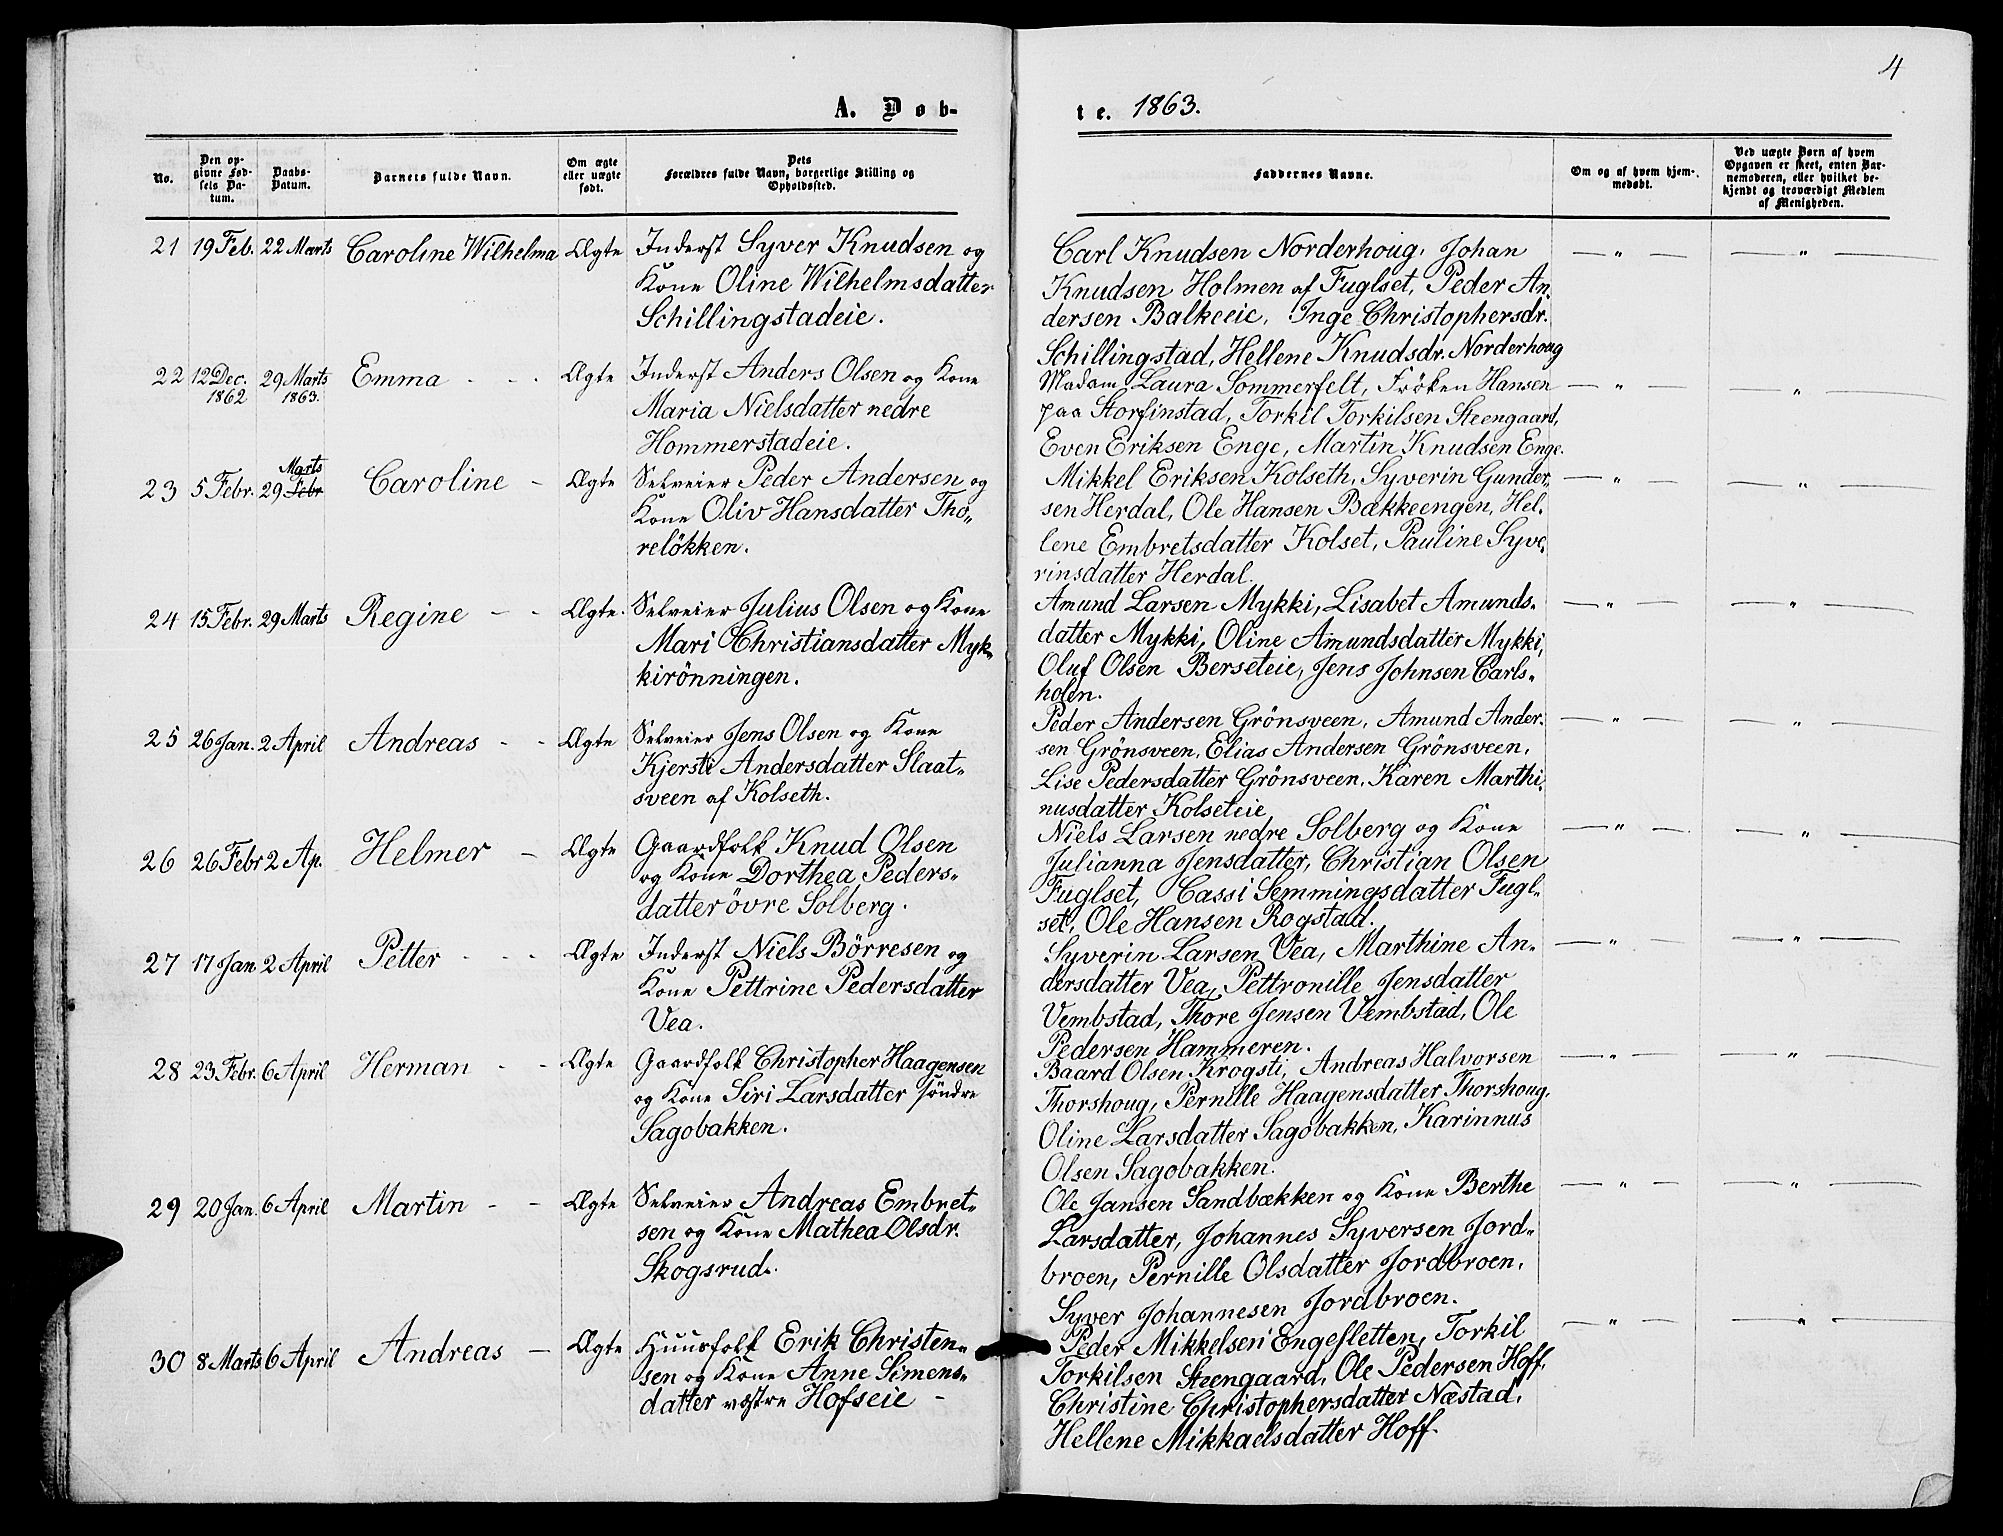 4
A. Døb-
te. 1863.
No.
Den op-
givne Fød-
sels Da-
tum.
Daabs-
Datum.
Barnets fulde Navn.
Om ægte
eller uægte
født.
Dets
Forældres fulde Navn, borgerlige Stilling og
Opholdssted.
Faddernes Navne.
Om og af hvem hjem-
medøbt.
Ved uægte Børn af hvem
Opgaven er skeet, enten Bar-
nemoderen, eller hvilket be-
kjendt og troværdigt Medlem
af Menigheden.
21 19 Feb. 22 Marts Caroline Wilhelma Ægte
Inderst Syver Knudsen og
Kone Oline Wilhelmsdatter
Schillingstadeie.
Carl Knudsen Norderhoug, Johan
Knudsen Holmen af Fuglset, Peder An-
dersen Balkeeie, Inge Christophersdr.
Schillingstad, Hellene Knudsdr. Norderhoug
— „ — — „ —
22 12 Dec. 1862 29 Marts 1863. Emma - - - Ægte
Inderst Anders Olsen og Kone
Maria Nielsdatter nedre
Hommerstadeie.
Madam Laura Sommerfelt, Frøken Hansen
paa Storfinstad, Torkil Torkilsen Steengaard,
Even Eriksen Enge, Martin Knudsen Enge.
— „ — — „ —
23 5 Febr. 29 Febr Marts Caroline - Ægte
Selveier Peder Andersen og
Kone Oliv Hansdatter Tho„
reløkken.
Mikkel Eriksen Kolseth, Syverin Gunder„
sen Herdal, Ole Hansen Bækkeengen, Hel„
lene Embretsdatter Kolset, Pauline Syve„
rinsdatter Herdal.
— „ — — „ —
24 15 Febr. 29 Marts Regine - - Ægte.
Selveier Julius Olsen og Kone
Mari Christiansdatter Myk„
kirönningen.
Amund Larsen Mykki, Lisabet Amunds„
datter Mykki, Oline Amundsdatter Mykki,
Oluf Olsen Berseteie, Jens Johnsen Carls„
holen.
— „ — — „ —
25 26 Jan. 2 April Andreas - - Ægte
Selveier Jens Olsen og Kone
Kjersti Andersdatter Slaat„
sveen af Kolseth.
Peder Andersen Grönsveen, Amund Ander„
sen Grönsveen, Elias Andersen Grönsveen,
Lise Pedersdatter Grönsveen, Karen Marthi„
nusdatter Kolseteie
— „ — — „ —
26 26 Febr 2 Ap. Helmer - Ægte
Gaardfolk Knud Olsen
og Kone Dorthea Peders„
datter övre Solberg.
Niels Larsen nedre Solberg og Kone
Julianna Jensdatter, Christian Olsen
Fuglset, Cassi Semmingsdatter Fugl„
set, Ole Hansen Rogstad.
— „ — — „ —
27 17 Jan 2 April Petter - - - Ægte
Inderst Niels Börresen og
Kone Pettrine Pedersdatter
Vea.
Syverin Larsen Vea, Marthine An„
dersdatter Vea, Pettronille Jensdatter
Vembstad, Thore Jensen Vembstad, Ole
Pedersen Hammeren.
— „ — — „ —
28 23 Febr. 6 April Herman - - Ægte
Gaardfolk Christopher Haagensen
og Kone Siri Larsdatter söndre
Sagobakken.
Baard Olsen Krogsti, Andreas Halvorsen
Thorshoug, Pernille Haagensdatter Thorshoug,
Oline Larsdatter Sagobakken, Karinnus
Olsen Sagobakken.
— „ — — „ —
29 20 Jan. 6 April Martin - - Ægte
Selveier Andreas Embret„
sen og Kone Mathea Olsdr.
Skogsrud.
Ole Jansen Sandbækken og Kone Berthe
Larsdatter, Johannes Syversen Jord„
broen, Pernille Olsdatter Jordbroen,
Syver Johannesen Jordbroen.
— „ — — „ —
30 8 Marts 6 April Andreas - Ægte
Huusfolk Erik Christen„
sen og Kone Anne Simens„
datter vestre Hofseie -
Peder Mikkelsen Engesletten, Torkil
Torkilsen Steengaard, Ole Pedersen Hoff,
Christine Christophersdatter Næstad,
Hellene Mikkaelsdatter Hoff.
— „ — — „ —